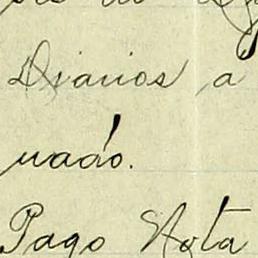 Diarios a
uado.
Pago Nota